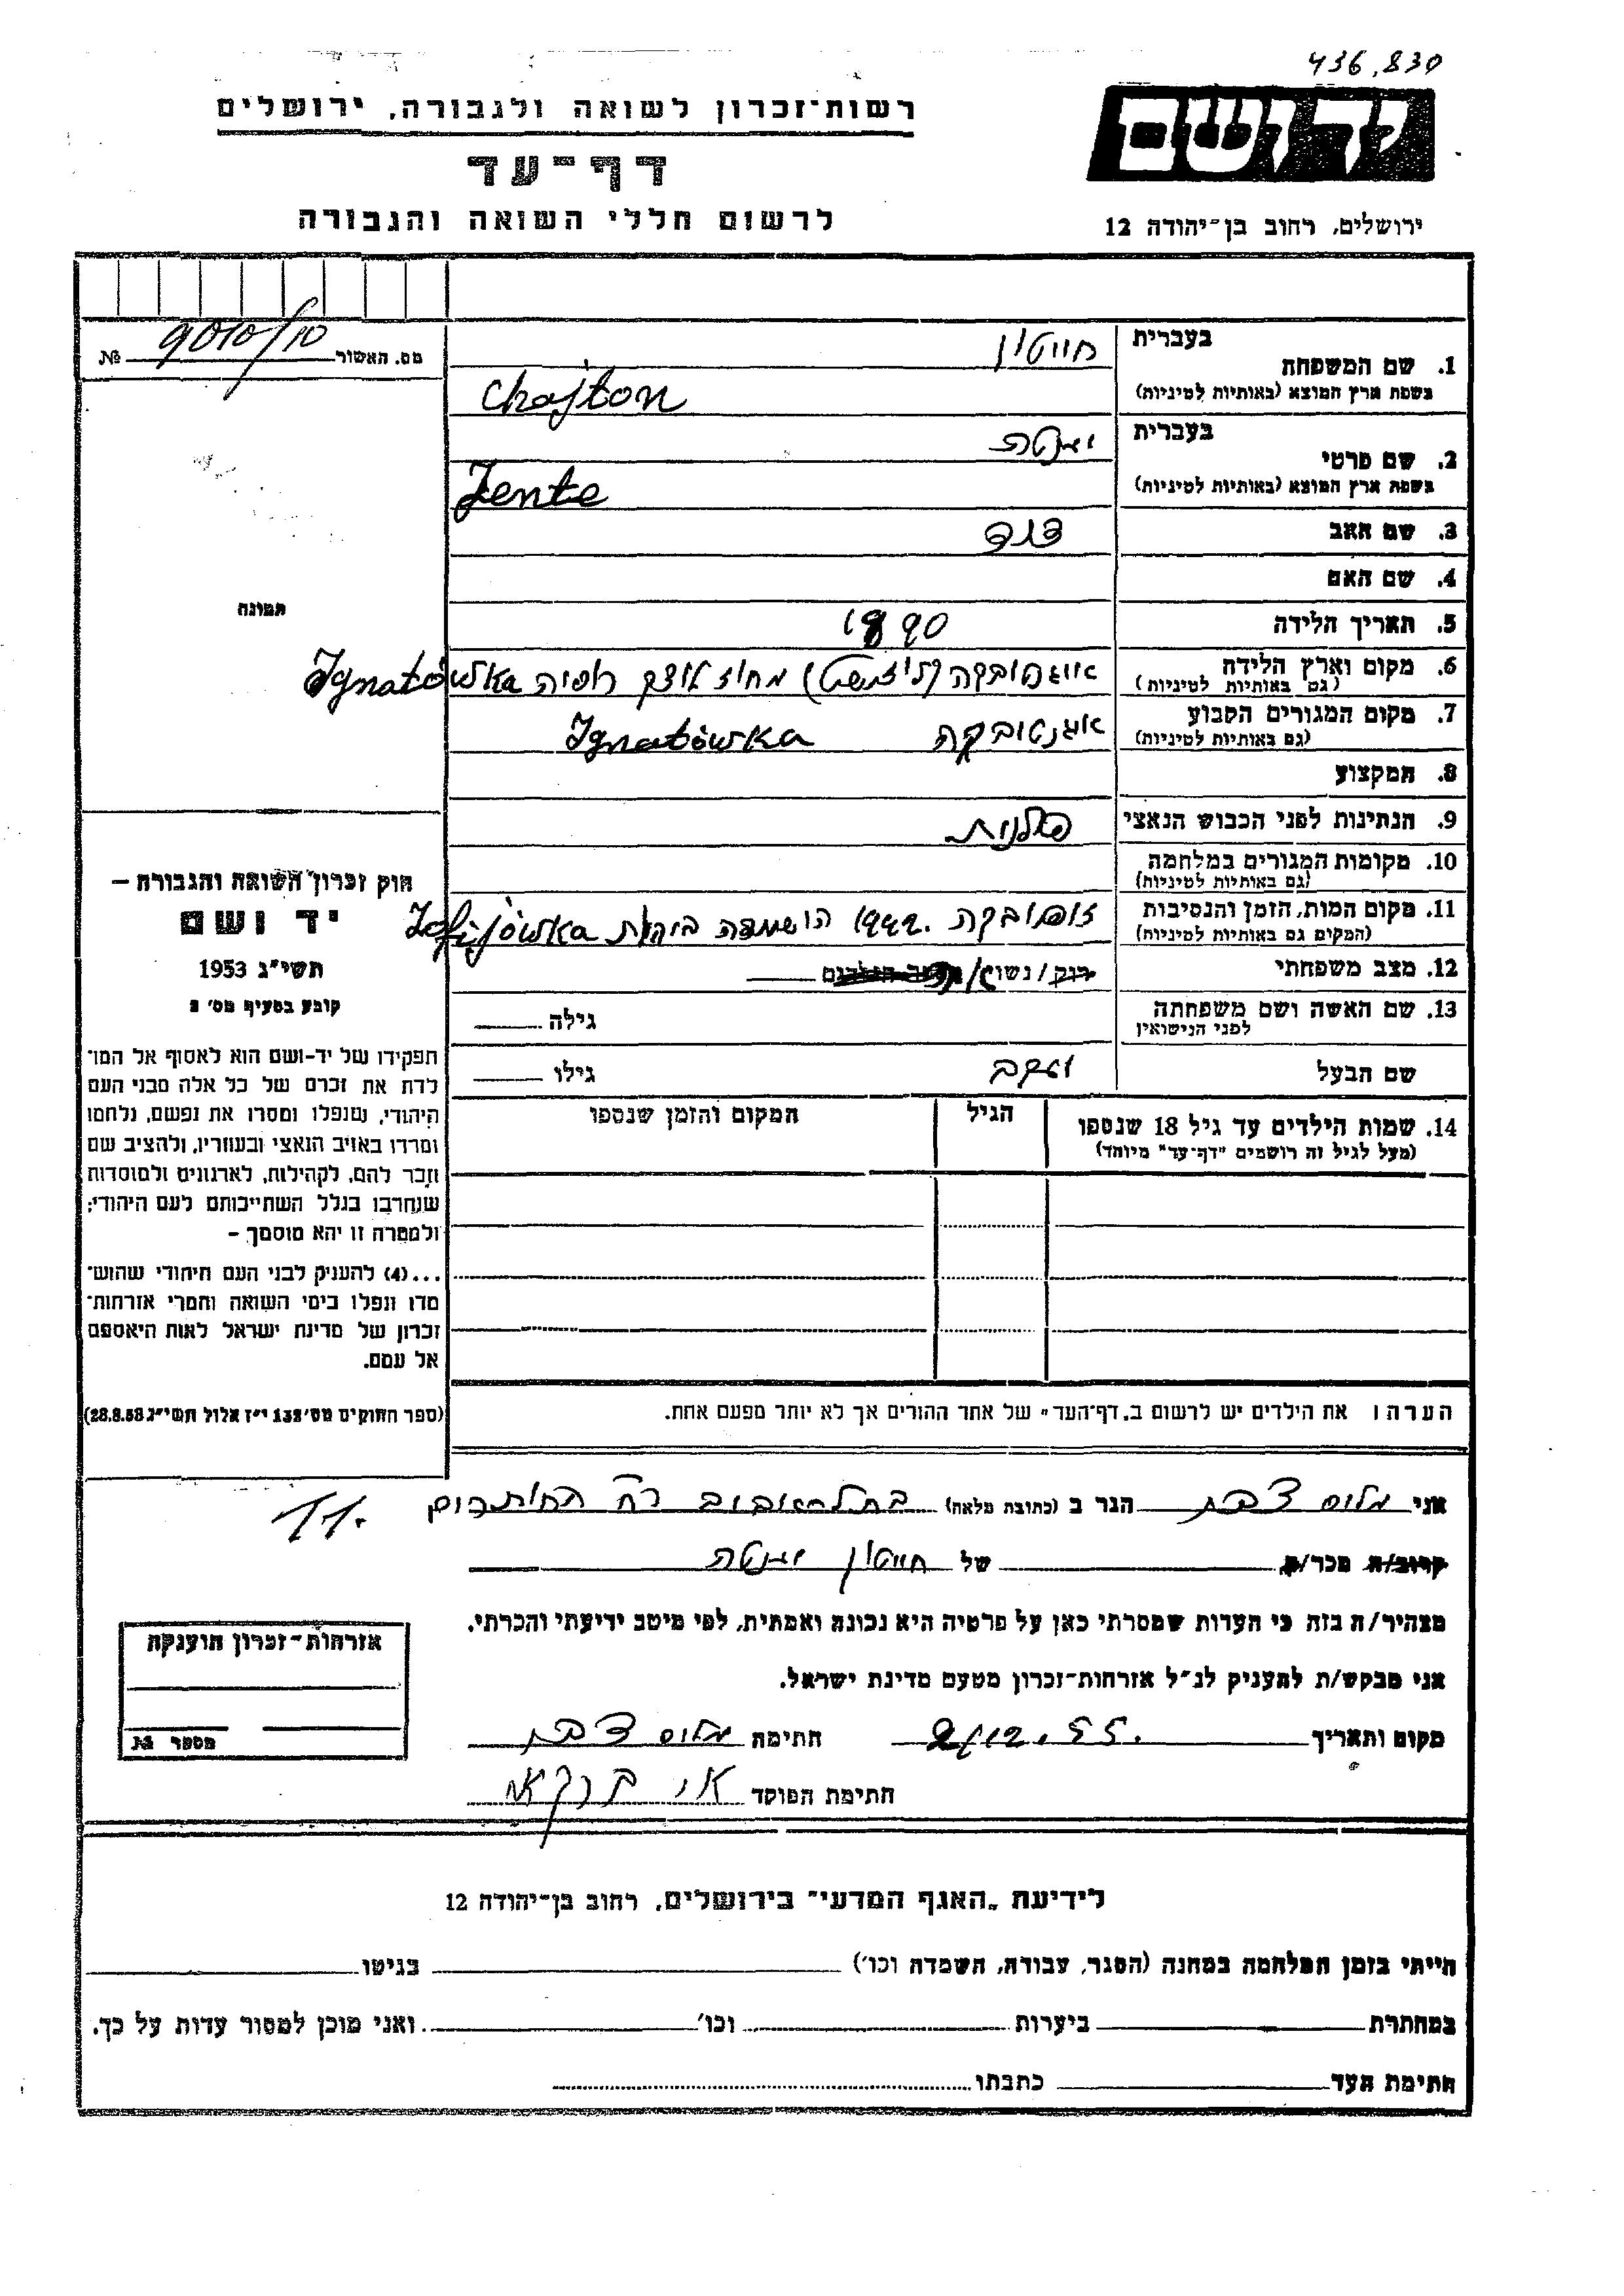 436,830
רשות־זכרון לשואה ולגבורה, ירושלים
יד ושם
דף־עד
לרשום חללי השואה והגבורה
ירושלים, רחוב בן־יהודה 12
מס. האשור № 9010/10
בעברית חייטון
1. שם המשפחה
בשפת ארץ המוצא (באותיות לטיניות) Chajton
בעברית יאנטה
2. שם פרטי
בשפת ארץ המוצא (באותיות לטיניות) Jente
3. שם האב
4. שם האם
תמונה
5. תאריך הלידה 1890
6. מקום וארץ הלידה מחוז לוצק רוסיה Ignatówka
(גם באותיות לטיניות)
7. מקום המגורים הקבוע איגנטובקה Ignatówka
(גם באותיות לטיניות)
8. המקצוע
9. הנתינות לפני הכבוש הנאצי פולנית
10. מקומות המגורים במלחמה
(גם באותיות לטיניות)
11. מקום המות, הזמן והנסיבות זופיובקה 1942. הושמדה Zofijówka
(המקום גם באותיות לטיניות)
12. מצב משפחתי רוק/נשוי/
13. שם האשה ושם משפחתה גילה
לפני הנישואין
שם הבעל יעקב גילו
14. שמות הילדים עד גיל 18 שנספו הגיל המקום והזמן שנספו
(מעל לגיל זה רושמים "דף־עד" מיוחד)
חוק זכרון השואה והגבורה —
יד ושם
תשי"ג 1953
קובע בסעיף מס' 2
תפקידו של יד-ושם הוא לאסוף אל המו־
לדת את זכרם של כל אלה מבני העם
היהודי, שנפלו ומסרו את נפשם, נלחמו
ומרדו באויב הנאצי ובעוזריו, ולהציב שם
וזכר להם, לקהילות, לארגונים ולמוסדות
שנחרבו בגלל השתייכותם לעם היהודי;
ולמטרה זו יהא מוסמך —
...(4) להעניק לבני העם היהודי שהוש־
מדו ונפלו בימי השואה והמרי אזרחות־
זכרון של מדינת ישראל לאות היאספם
אל עמם.
(ספר החוקים מס' 132 י"ז אלול תשי"ג 28.8.53)
הערה: את הילדים יש לרשום ב„דף־העד" של אחד ההורים אך לא יותר מפעם אחת.
אני הגר ב (כתובת מלאה) בתל־אביב רח' החותרים
11.
קרוב/ה מכר/ה של חייטון יאנטה
מצהיר/ה בזה כי העדות שמסרתי כאן על פרטיה היא נכונה ואמתית, לפי מיטב ידיעתי והכרתי.
אני מבקש/ת להעניק לנ"ל אזרחות־זכרון מטעם מדינת ישראל.
מקום ותאריך 2/12.55. חתימה
חתימת הפוקד
אזרחות־זכרון הוענקה
מספר №
לידיעת „האגף המדעי" בירושלים, רחוב בן־יהודה 12
הייתי בזמן המלחמה במחנה (הסגר, עבודה, השמדה וכו') בגיטו
במחתרת ביערות וכו' ואני מוכן למסור עדות על כך.
חתימת העד כתבתו